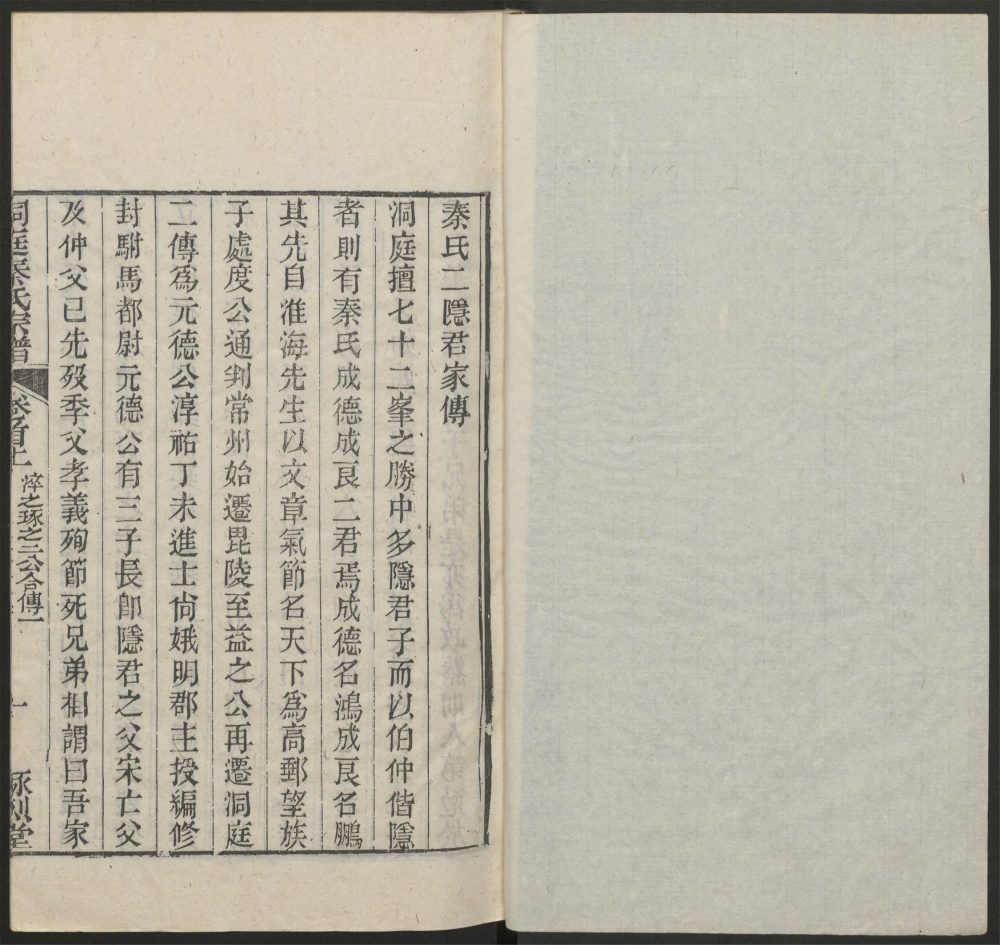 秦氏二隱君家傳
洞庭擅七十二峯之勝中多隱君子而以伯仲偕隱
者則有秦氏成德成良二君焉成德名鴻成良名鵬
其先自淮海先生以文章氣節名天下為高郵望族
子處度公通判常州始遷毘陵至益之公再遷洞庭
二傳為元德公淳祐丁未進士尙娥明郡主授編修
封駙馬都尉元德公有三子長卽隱君之父宋亡父
及仲父已先歿季父孝義殉節死兄弟相謂曰吾家
洞庭秦氏宗譜 卷首七 淬之琢之二公合傳一 一 詠烈堂